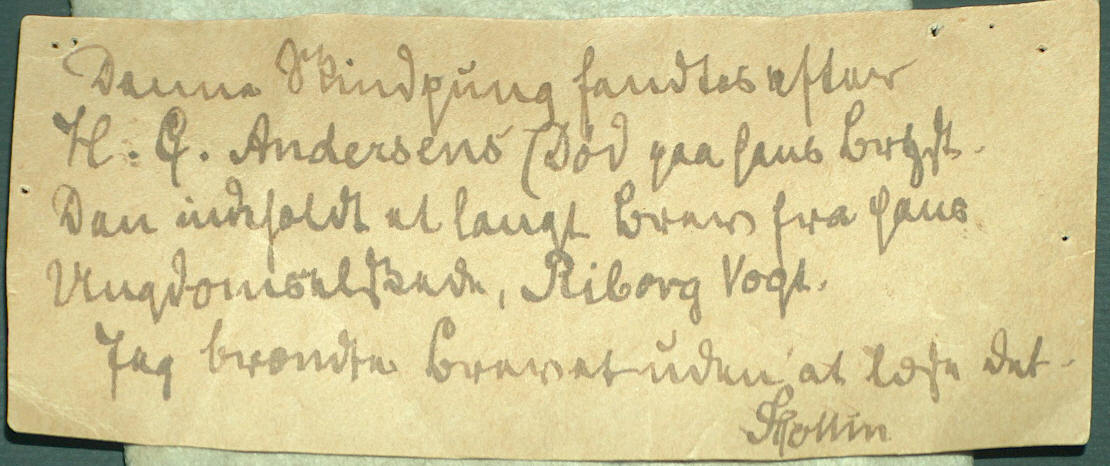 Denne Skindpung fandtes efter
H. C. Andersens Død paa hans Bryst.
Den indeholdt et langt Brev fra hans
Ungdomselskede, Riborg Voigt.
Jeg brændte Brevet uden at læse det.
JCollin